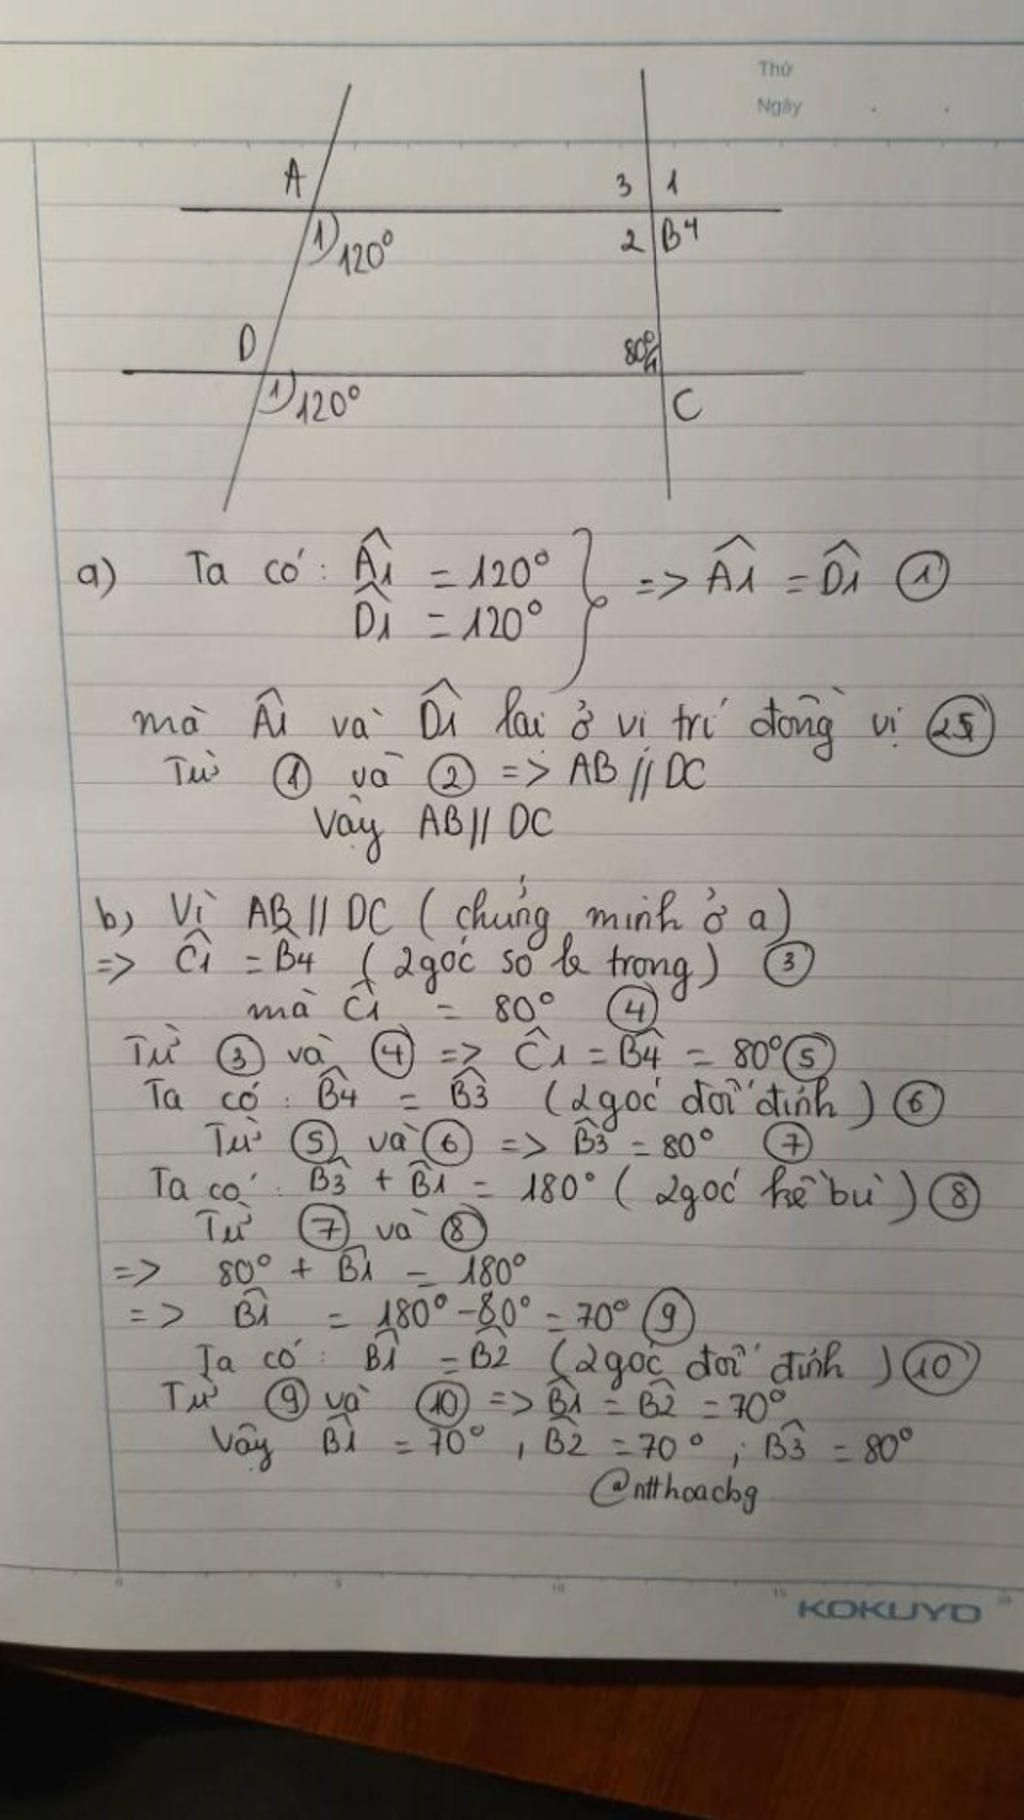 Thứ
Ngày
A
3 1
1 120°
2 B 4
D
80° 1
1 120°
C
a) Ta có: Â1 = 120°
D̂1 = 120°
=> Â1 = D̂1 ①
mà Â1 và D̂1 lại ở vị trí đồng vị ②
Từ ① và ② => AB // DC
Vậy AB // DC
b) Vì AB // DC (chứng minh ở a)
=> Ĉ1 = B̂4 (2 góc so le trong) ③
mà Ĉ1 = 80° ④
Từ ③ và ④ => Ĉ1 = B̂4 = 80° ⑤
Ta có: B̂4 = B̂3 (2 góc đối đỉnh) ⑥
Từ ⑤ và ⑥ => B̂3 = 80° ⑦
Ta có: B̂3 + B̂1 = 180° (2 góc kề bù) ⑧
Từ ⑦ và ⑧
=> 80° + B̂1 = 180°
=> B̂1 = 180° - 80° = 70° ⑨
Ta có: B̂1 = B̂2 (2 góc đối đỉnh) ⑩
Từ ⑨ và ⑩ => B̂1 = B̂2 = 70°
Vậy B̂1 = 70°, B̂2 = 70°; B̂3 = 80°
@ntthoacbg
0 5 10 15
KOKUYO